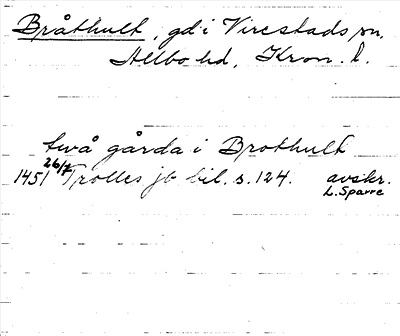 Bråthult, gd i Virestads sn,
Allbo hd, Kron. l.
två gårda i Brothult
1451 26/7 Trolles jb bil. s. 124. avskr.
L. Sparre